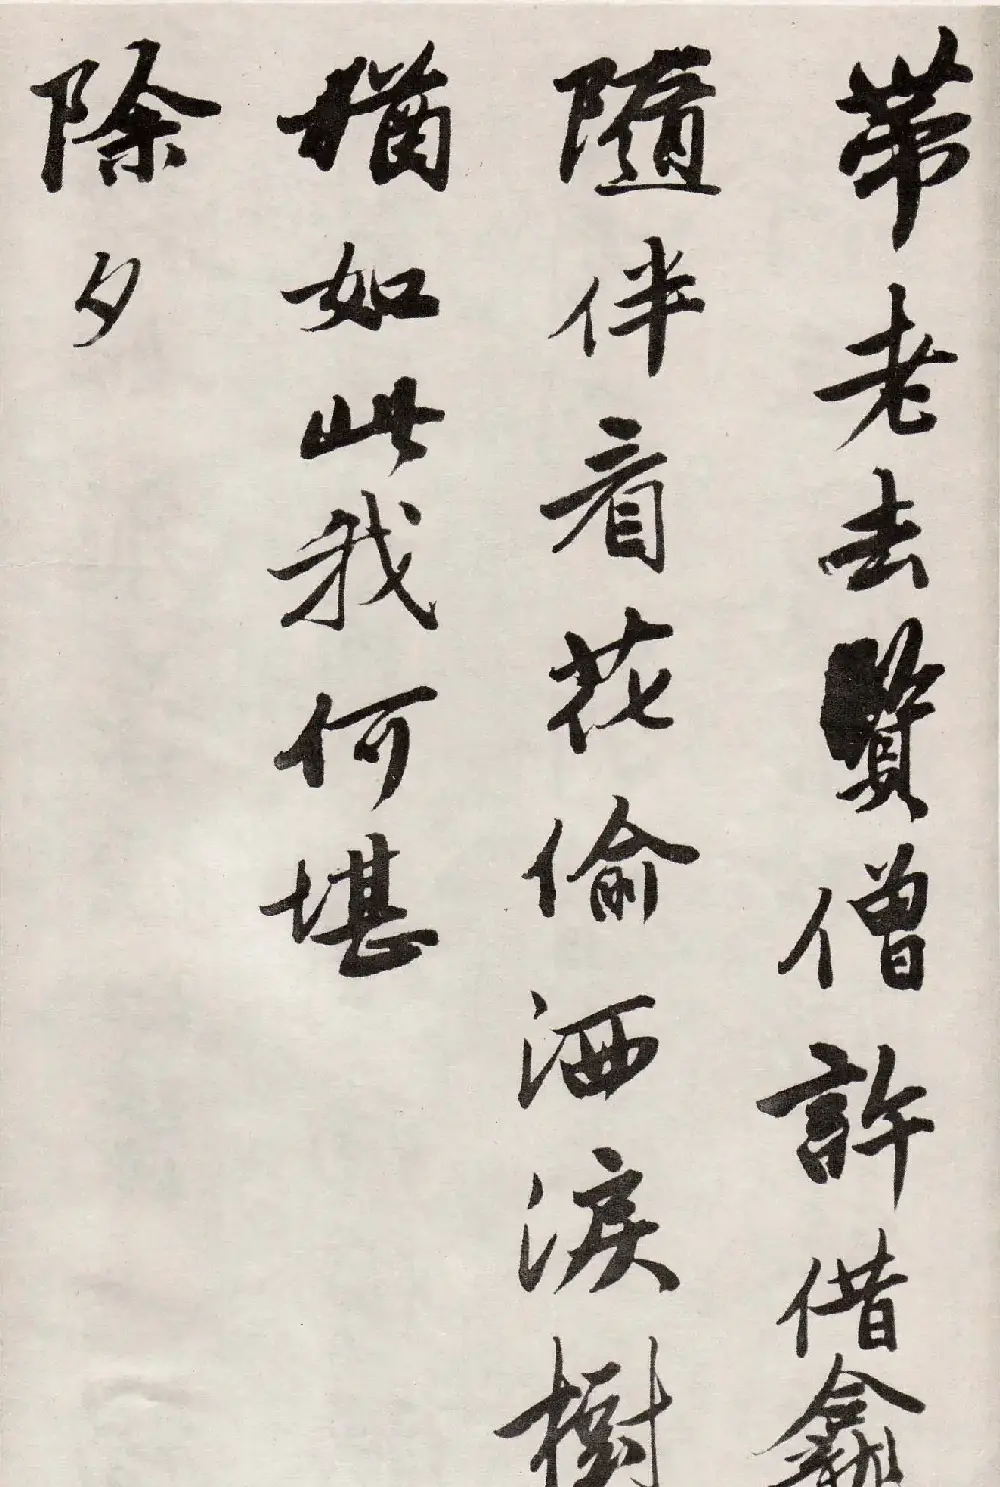 帶老去贒僧許借龕
隨伴看花偷洒淚樹
猶如此我何堪
除夕